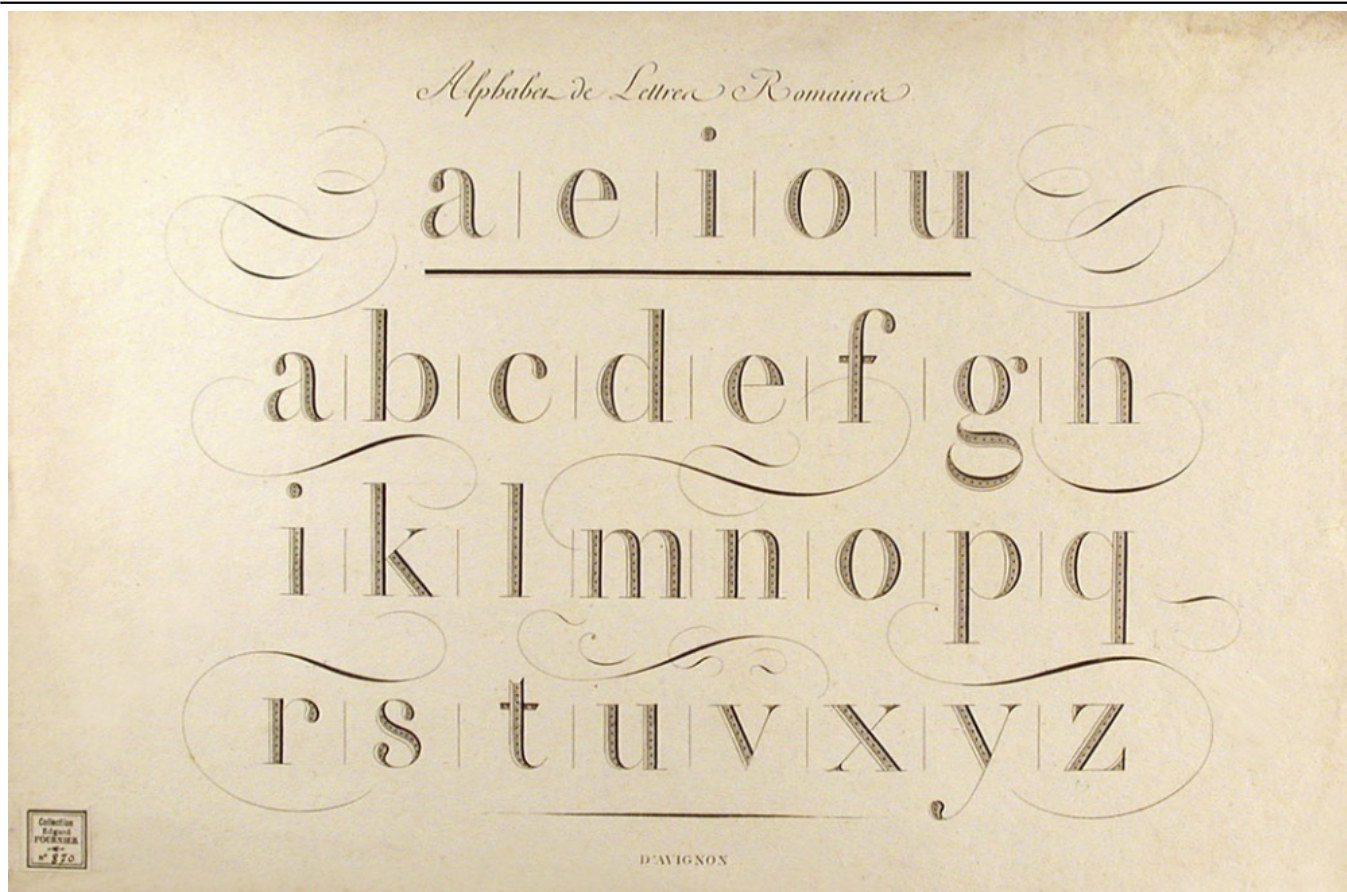 Alphabet de Lettres Romaines
a e i o u
a b c d e f g h
i k l m n o p q
r s t u v x y z
Collection
Edgard
FOURNIER
n° 870
D'AVIGNON